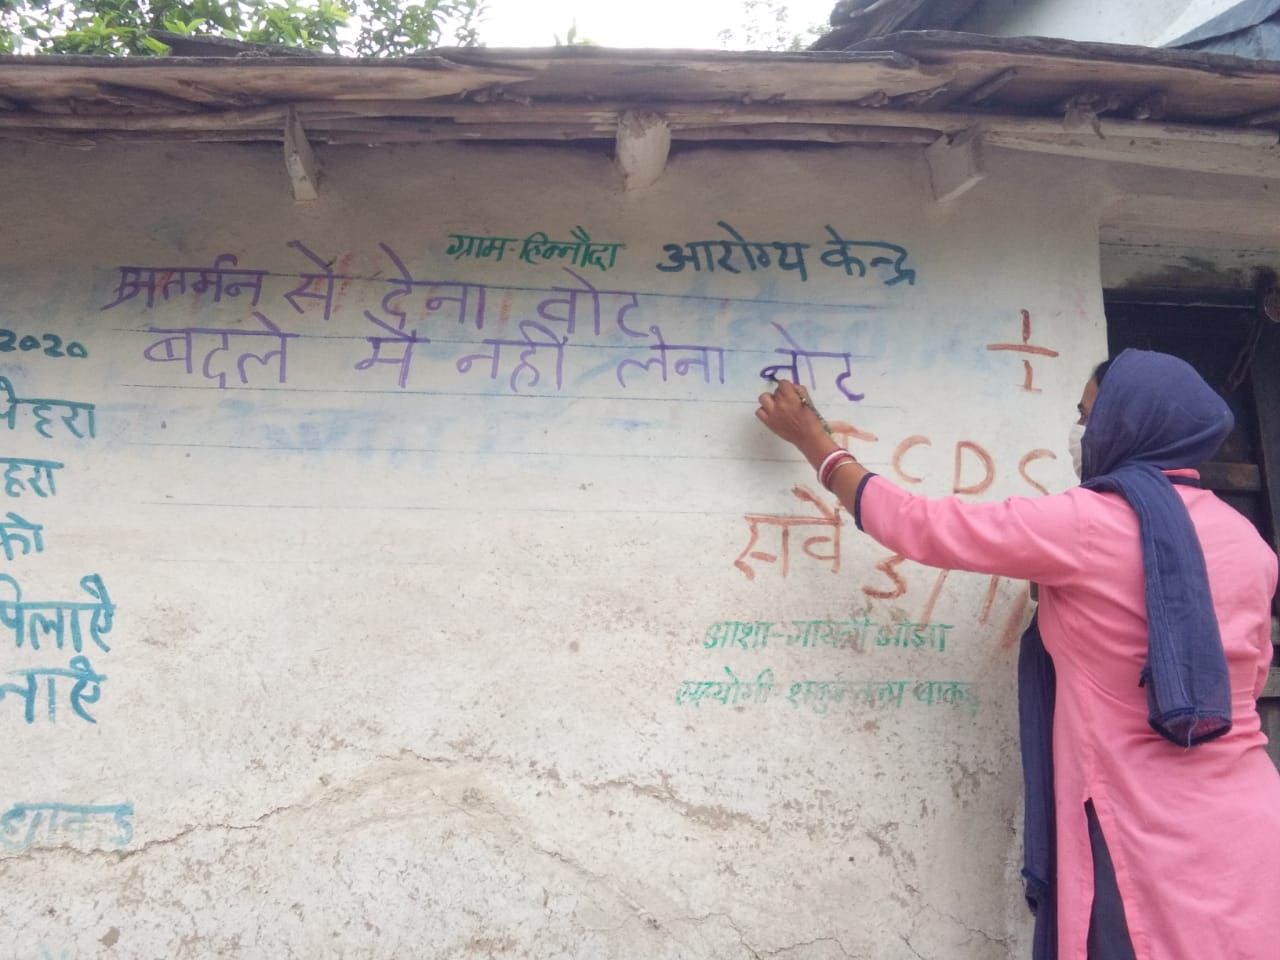 ग्राम-हिन्नौदा आरोग्य केन्द्र
अतर्मन से देना वोट
बदले मे नही लेना नोट
1/1
2020
हरा
को
पिलाऐ
नाऐ
धाकड
CDS
सर्वे
3/11
आशा-गायत्री ओझा
सहयोगी-शकुन्तला धाकड